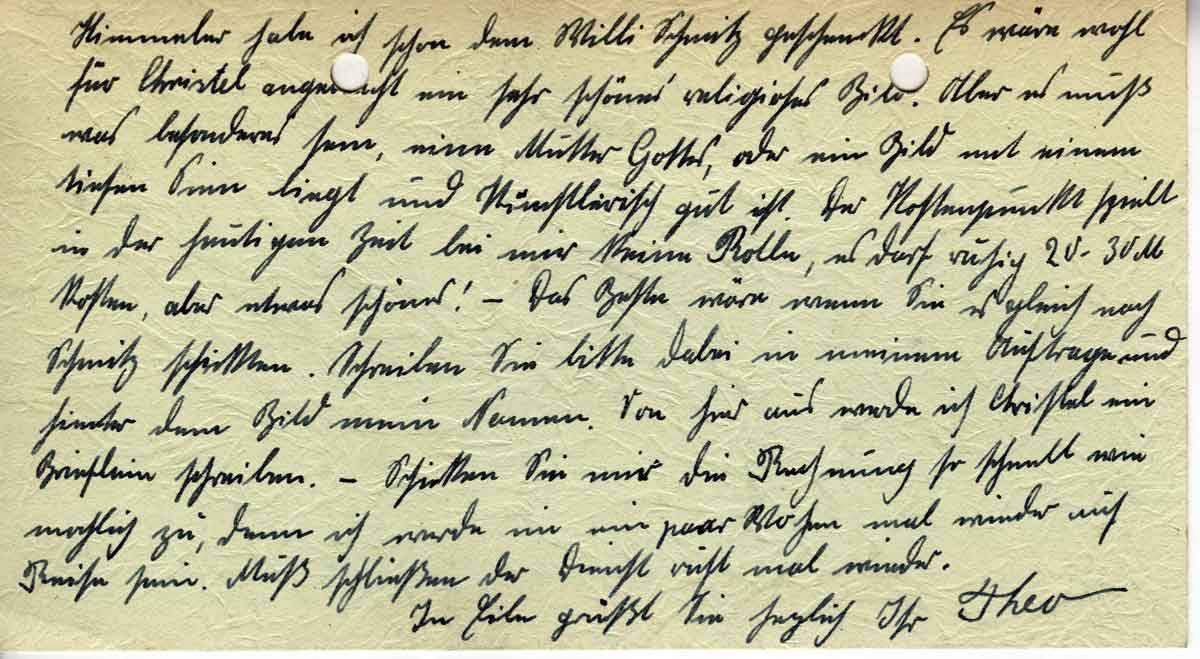 Himmeler habe ich schon dem Willi Schmitz geschenckt. Es wäre wohl
für Christel angebracht ein sehr schönes religioses Bild. Aber es muß
was besonderes sein, eine Mutter Gottes, oder ein Bild mit einem
tiefen Sinn liegt und Künstlerisch gut ist. Der Kostenpunkt spielt
in der heutigen Zeit bei mir keine Rolle, es darf ruhig 20-30 M
kosten, aber etwas schönes! – Das Beste wäre wenn Sie es gleich nach
Schmitz schickten. Schreiben Sie bitte dabei in meinem Auftrage und
hinter dem Bild mein Namen. Von hier aus werde ich Christel ein
Brieflein schreiben. – Schicken Sie mir die Rechnung so schnell wie
möchlich zu, denn ich werde in ein paar Wochen mal wieder auf
Reise sein. Muß schließen der Dienst ruft mal wieder.
In Eile grüßt Sie herzlich Ihr Theo